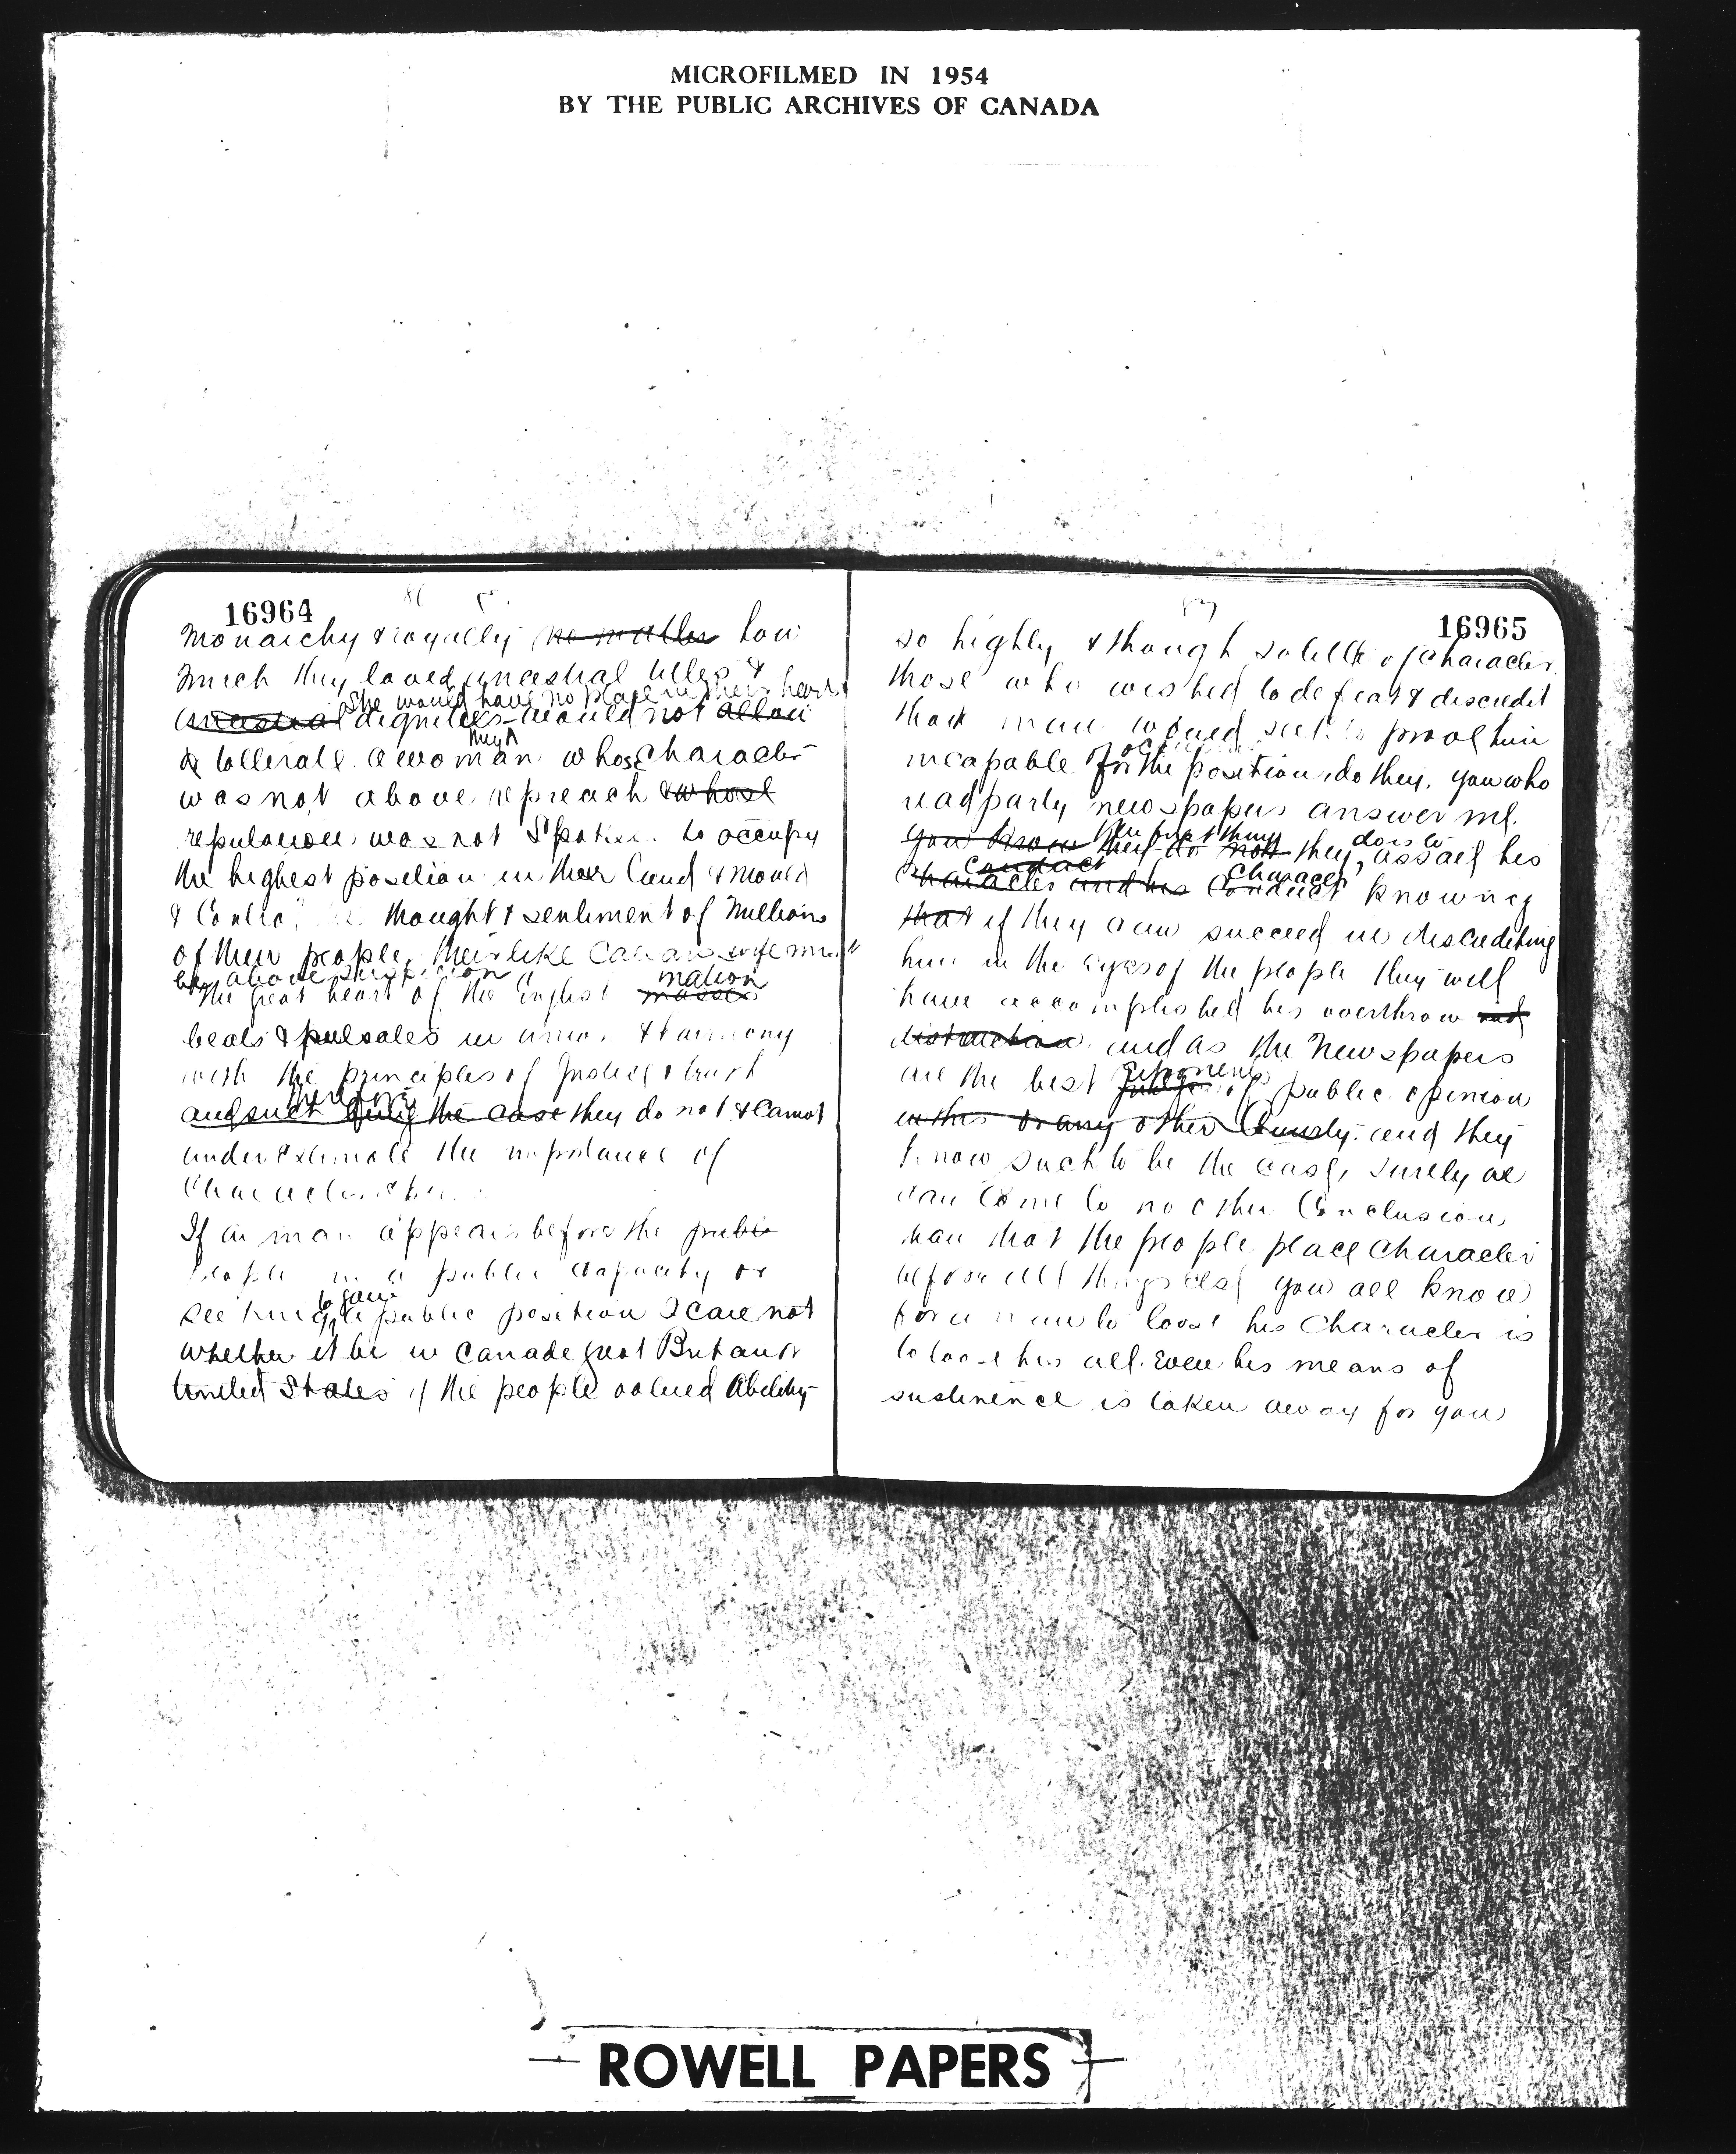 MICROFILMED IN 1954
BY THE PUBLIC ARCHIVES OF CANADA
16964
Monarchy & royalty no matter how
much they loved ancestral titles &
She would have no place in their hearts
ancestral dignities would not allow
they
& tollerate a woman whose character
was not above repreach & whose
reputation was not Spotless to occupy
the highest position in their land & mould
& Control the thought & sentiment of Millions
of their people, their like Caesars wife must
be above suspicion
The great heart of the English masses
nation
beats & pulsates in unison & harmony
with the principles of Justice & truth
therefore
and such being the case they do not & cannot
under Estimate the importance of
Character
If a man appears before the public
people in a public capacity or
to gain
seeking a public position I care not
whether it be in Canada great Britain or
United States if the people valued Ability
16965
so highly & though so little of Character
those who wished to defeat & discredit
that man would seek to proove him
incapable for the position, do they. you who
read party newspapers answer me.
the first thing
you know they do not they assail his
does is
Conduct Character
Character and his Conduct knowing
that if they can succeed in discrediting
him in the eyes of the people they will
have accomplished his overthrow and
distruction and as the Newspapers
exponents
are the best Judge of public opinion
in this or any other Country and they
know such to be the case, surely we
can Come to no other Conclusion
than that the people place Character
before all things else you all know
for a man to loose his Character is
to loose his all. Even his means of
sustinence is taken away for you
ROWELL PAPERS